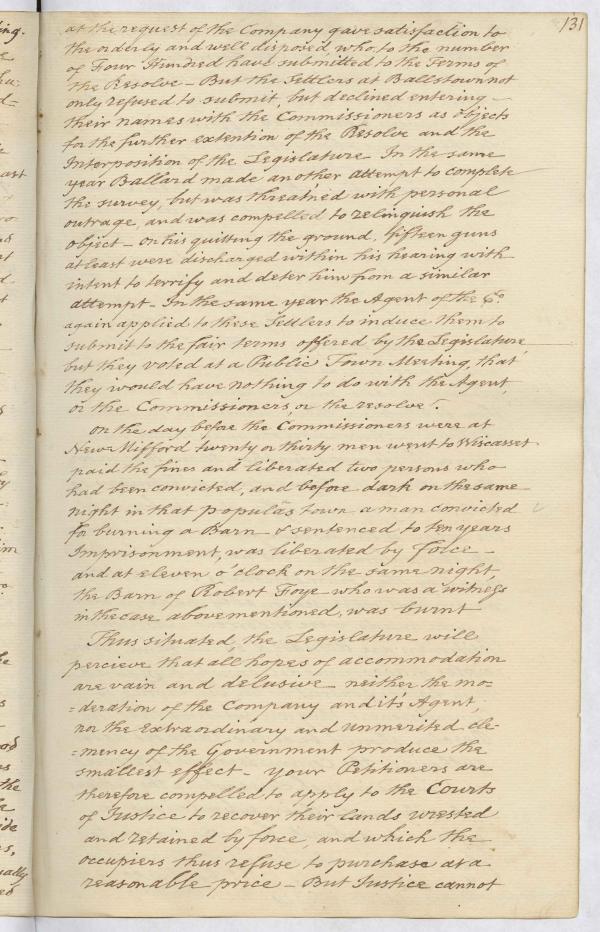 131
at the request of the Company gave satisfaction to
the orderly and well disposed, who, to the number
of Four Hundred have submitted to the Terms of
the Resolve – But the Settlers at Ballstown not
only refused to submit, but declined entering –
their names with the Commissioners as objects
for the further extention of the Resolve and the
Interposition of the Legislature In the same
year Ballard made another attempt to complete
the survey, but was threatned with personal
outrage, and was compelled to relinquish the
object – on his quitting the ground, fifteen guns
at least were discharged within his hearing with
intent to terrify and deter him from a similar
attempt – In the same year the Agent of the Co.
again applied to these Settlers to induce them to
submit to the fair terms offered by the Legislature
but they voted at a Public Town Meeting, that
they would have nothing to do with the Agent,
or the Commissioners, or the resolve.
On the day before the Commissioners were at
New Milford twenty or thirty men went to Wiscasset
paid the fines and liberated two persons who
had been convicted, and before dark on the same
night in that populas town, a man convicted
for burning a Barn & sentenced to ten years
Imprisonment, was liberated by force –
and at eleven o'clock on the same night,
the Barn of Robert Foye who was a witness
in the case abovementioned, was burnt
Thus situated, the Legislature will
percieve that all hopes of accommodation
are vain and delusive – neither the mo=
=deration of the Company and it's Agent,
nor the Extraordinary and unmerited cle=
=mency of the Government produce the
smallest effect – your Petitioners are
therefore compelled to apply to the Courts
of Justice to recover their lands wrested
and retained by force, and which the
occupiers thus refuse to purchase at a
reasonable price – But Justice cannot